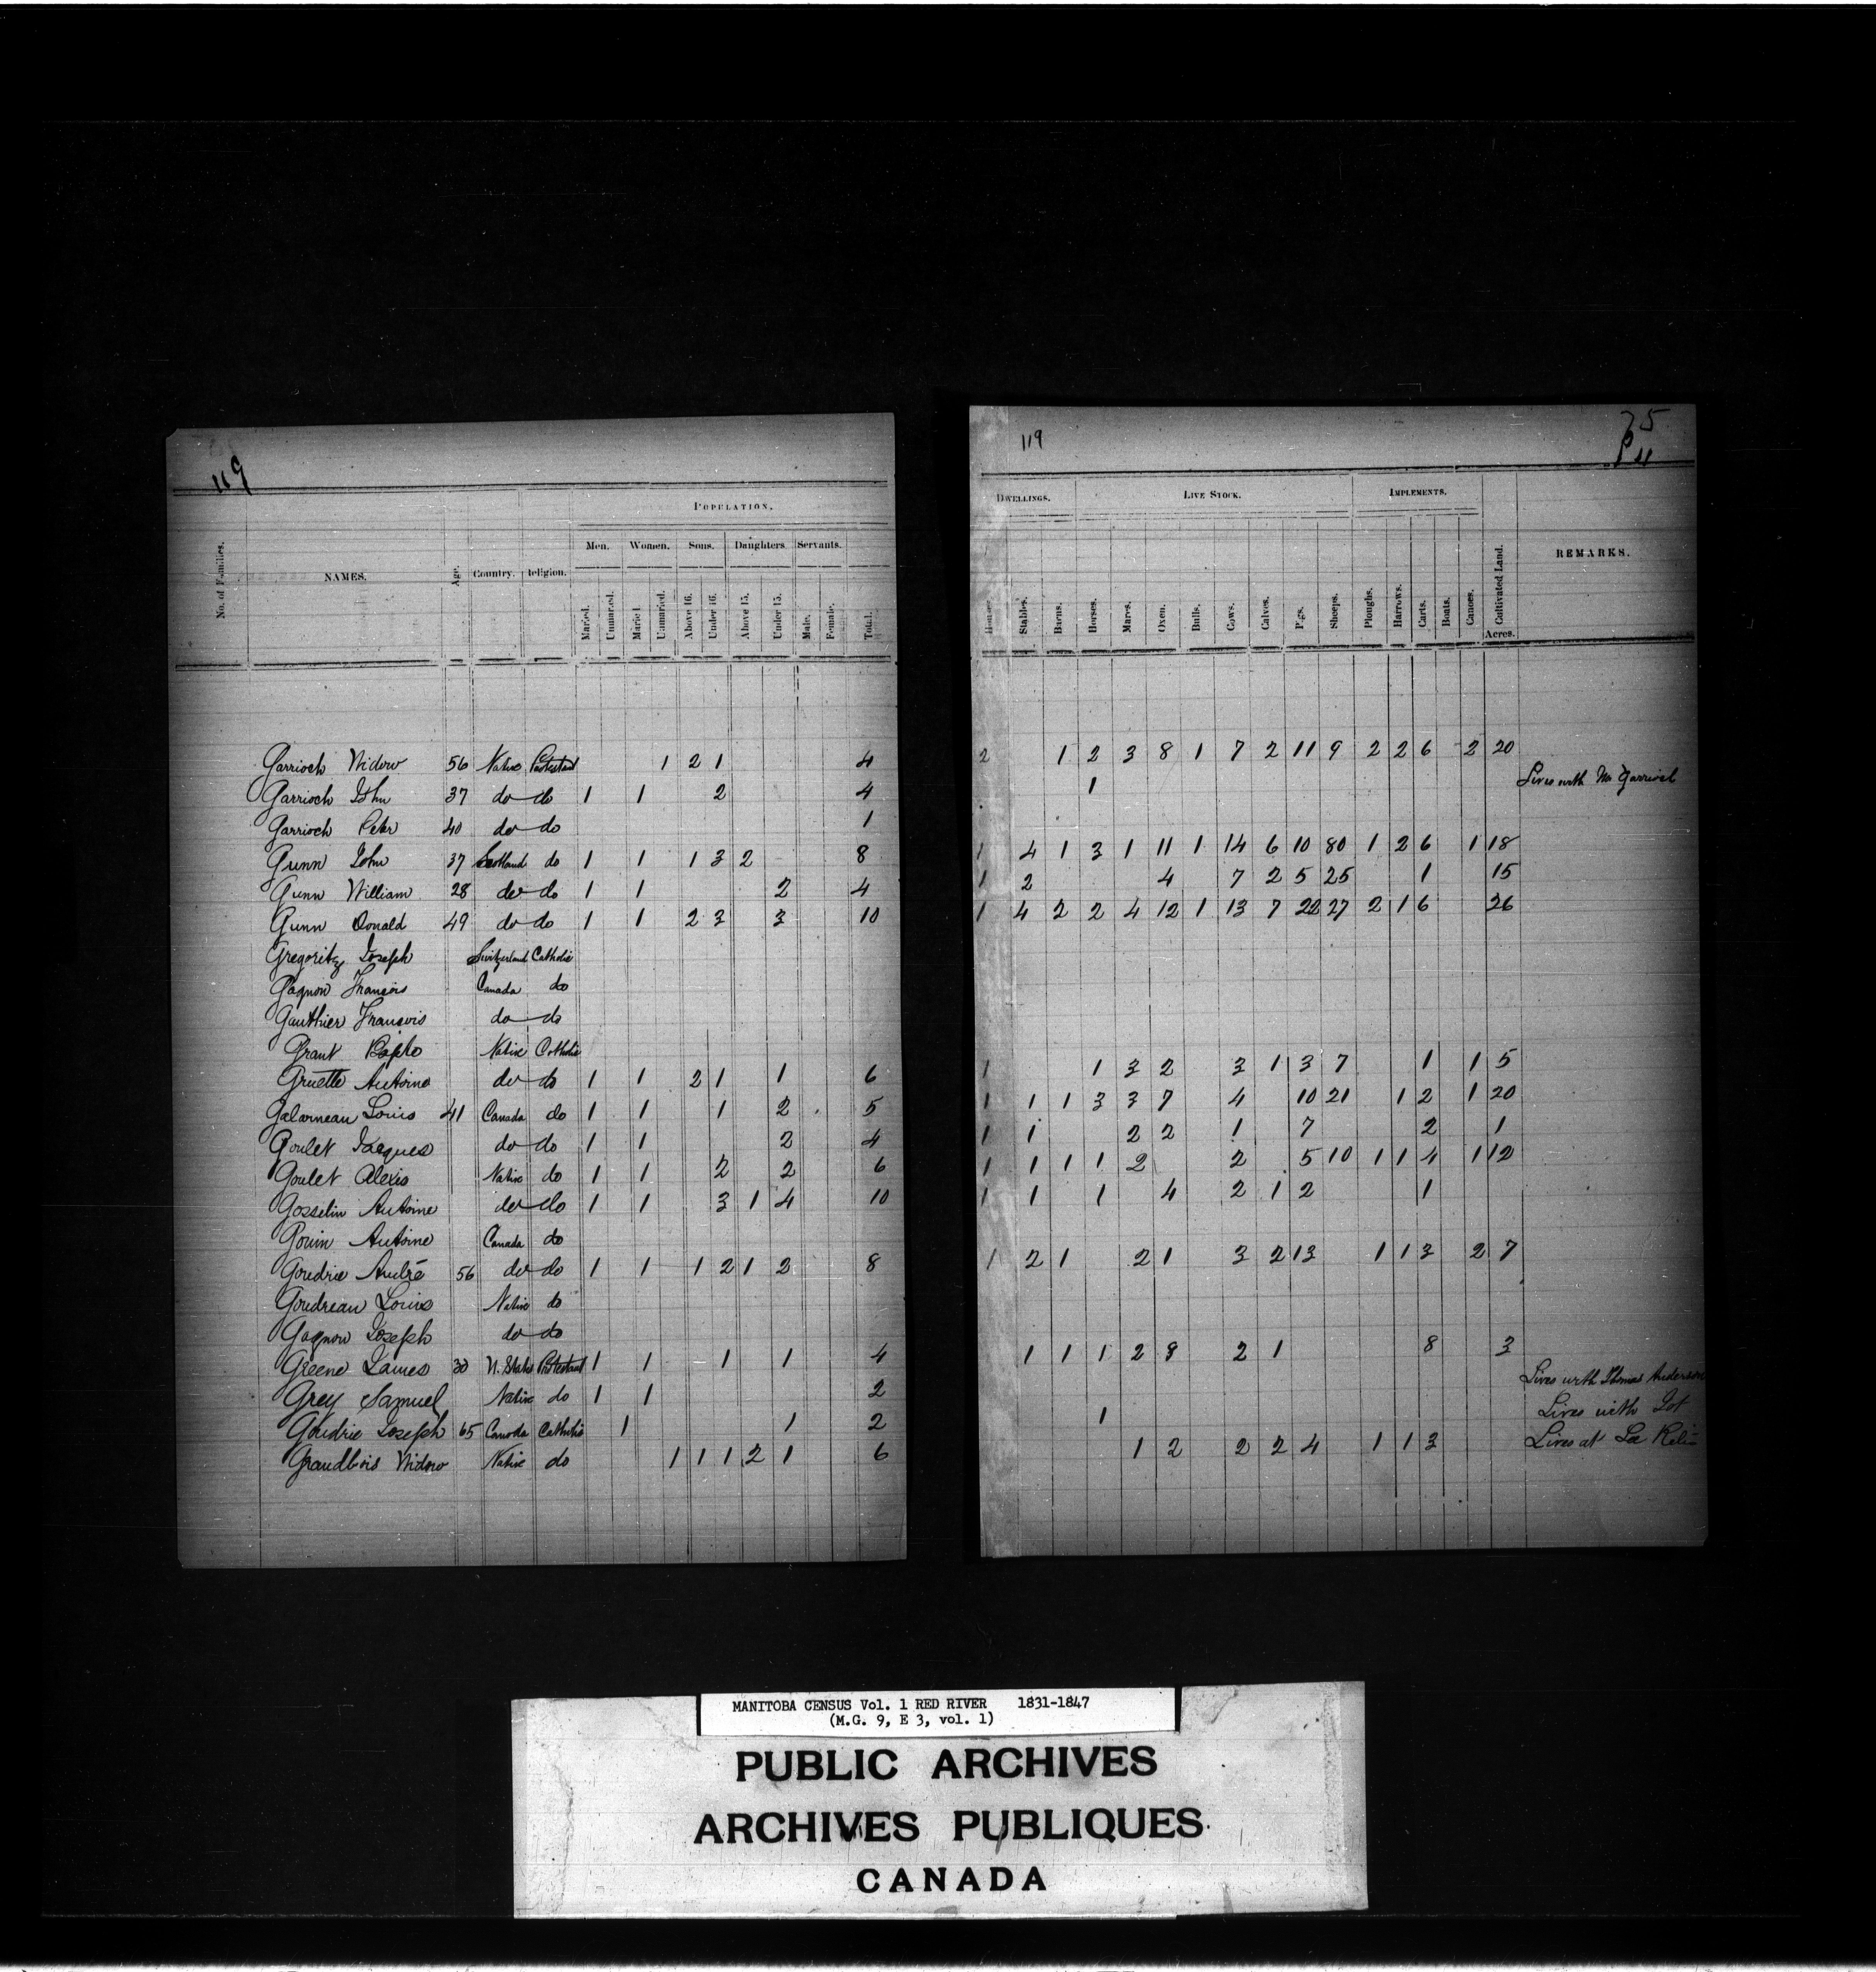 119
POPULATION.
No. of Families. NAMES. Age. Country. Religion. Men. Women. Sons. Daughters Servants.
Maried. Unmaried. Maried. Unmaried. Above 16. Under 16. Above 15. Under 15. Male. Female. Total.
Garrioch Widow 56 Native Protestant 1 2 1 4
Garrioch John 37 do do 1 1 2 4
Garrioch Peter 40 do do 1
Gunn John 37 Scotland do 1 1 1 3 2 8
Gunn William 28 do do 1 1 2 4
Gunn Donald 49 do do 1 1 2 3 3 10
Gregoritz Joseph Switzerland Catholic
Gagnon François Canada do
Gauthier François do do
Grant Bapte Native Catholic
Gruette Antoine do do 1 1 2 1 1 6
Galarneau Louis 41 Canada do 1 1 1 2 5
Goulet Jacques do do 1 1 2 4
Goulet Alexis Native do 1 1 2 2 6
Gosselin Antoine do do 1 1 3 1 4 10
Gouin Antoine Canada do
Goudrie André 56 do do 1 1 1 2 1 2 8
Goudreau Louis Native do
Gagnon Joseph do do
Greene James 30 U. States Protestant 1 1 1 1 4
Grey Samuel Native do 1 1 2
Goudrie Joseph 65 Canada Catholic 1 1 2
Grandbois Widow Native do 1 1 1 2 1 6
119
75
DWELLINGS. LIVE STOCK. IMPLEMENTS.
Houses Stables. Barns. Horses. Mares. Oxen. Bulls. Cows. Calves. Pigs. Sheeps. Ploughs. Harrows. Carts. Boats. Canoes. Cultivated Land. Acres. REMARKS.
2 1 2 3 8 1 7 2 11 9 2 2 6 2 20
1 Lives with Garrioch
1 4 1 3 1 11 1 14 6 10 80 1 2 6 1 18
1 2 4 7 2 5 25 1 15
1 4 2 2 4 12 1 13 7 22 27 2 1 6 26
1 1 3 2 3 1 3 7 1 1 5
1 1 1 3 3 7 4 10 21 1 2 1 20
1 1 2 2 1 7 2 1
1 1 1 1 2 2 5 10 1 1 4 1 12
1 1 1 4 2 1 2 1
1 2 1 2 1 3 2 13 1 1 3 2 7
1 1 1 2 8 2 1 8 3
Lives with Thomas Anderson
1 Lives with Lot
1 2 2 2 4 1 1 3 Lives at La
MANITOBA CENSUS Vol. 1 RED RIVER 1831-1847
(M.G. 9, E 3, vol. 1)
PUBLIC ARCHIVES
ARCHIVES PUBLIQUES
CANADA